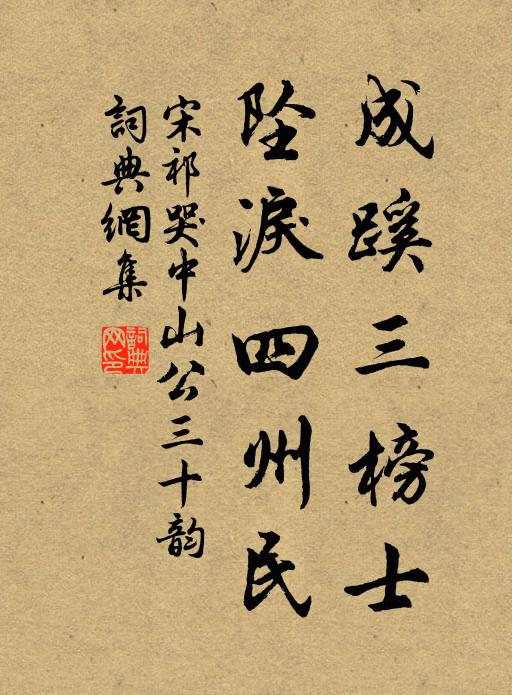 成蹊三榜士
坠淚四州民
宋祁哭中山公三十韵
詞典網集
詞典
网印